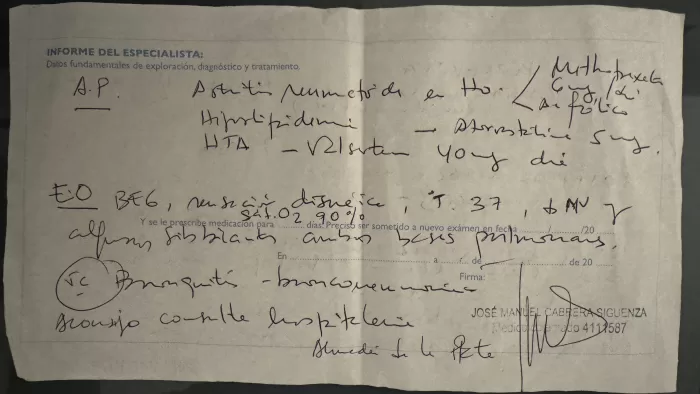 INFORME DEL ESPECIALISTA:
Datos fundamentales de exploración, diagnóstico y tratamiento.
A.P. Artritis reumatoide en tto. Methotrexate
6mg/di
Ac fólico
Hiperlipidemia - Atorvastatina 5 mg.
HTA - Valsartan 40 mg día
E.O BEG, sensación disneica, Tª 37, ↓ MV y
Sat.O2 90%
Y se le prescribe medicación para ........ días. Preciso ser sometido a nuevo exámen en fecha ....../....../20
algunos sibilantes ambas bases pulmonares.
En ........ a ..../.. de ........ de 20 ....
JC Bronquitis - bronconeumonia
Firma:
JOSÉ MANUEL CABRERA SIGUENZA
4111587
Aconsejo consulta hospitalaria